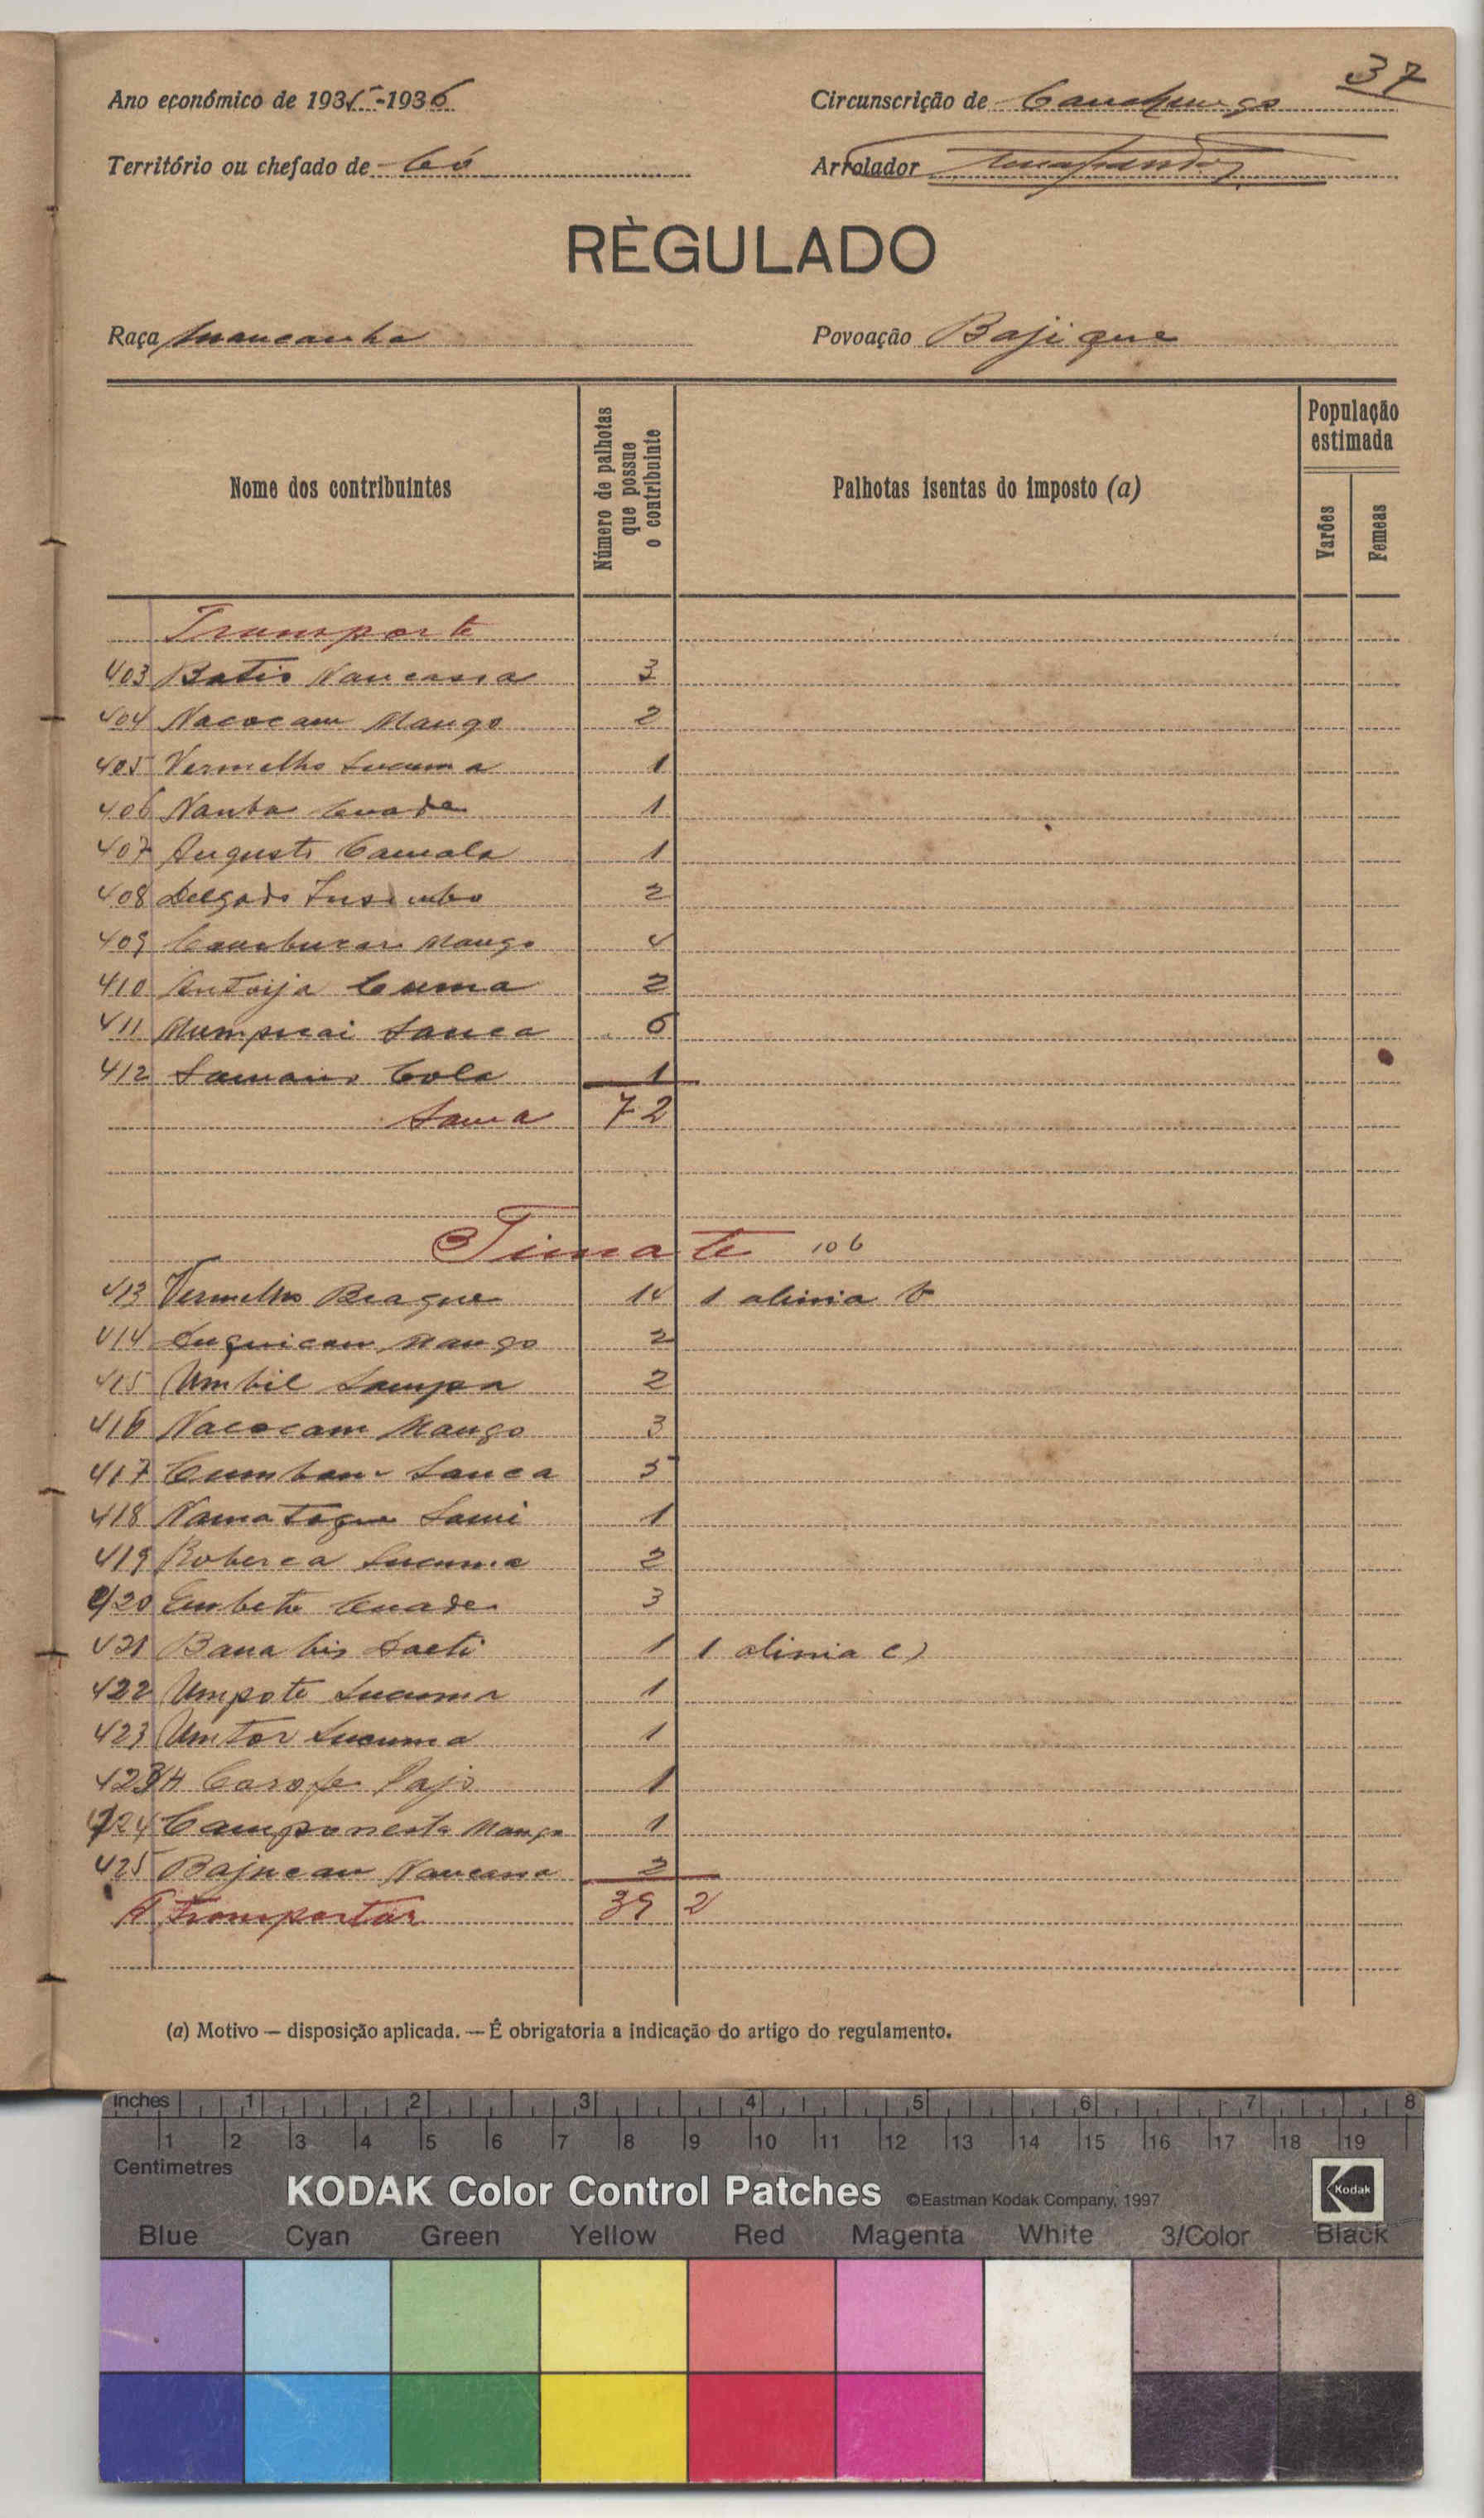 37
Ano económico de 1935-1936 Circunscrição de Canchungo
Território ou chefado de Có Arrolador
RÈGULADO
Raça Mancanha Povoação Bajique
Nome dos contribuintes
Número de palhotas que possue o contribuinte
Palhotas isentas do imposto (a)
População estimada
Varões
Femeas
Transporte
403 Batis Nancassa 3
404 Nacocam Mango 2
405 Vermelho Lucuma 1
406 Nanba Cuade 1
407 Augusto Camala 1
408 Delgado 2
409 Mango 4
410 Antoija Cuma 2
411 Sanca 6
412 Cola 1
Soma 72
Timate 106
413 Vermelho Biague 14 1 alinia b
414 Mango 2
415 Umbil Sampa 2
416 Nacocam Mango 3
417 Sanca 5
418 Sami 1
419 Roberca Lucuma 2
420 Cuade 3
421 1 1 alinia c)
422 Umpote Lucuma 1
423 Umtor Lucuma 1
423/A 1
424 Mango 1
425 Nancassa 2
A transportar 39 2
(a) Motivo — disposição aplicada. — É obrigatoria a indicação do artigo do regulamento.
Inches 1 2 3 4 5 6 7 8
1 2 3 4 5 6 7 8 9 10 11 12 13 14 15 16 17 18 19
Centimetres
KODAK Color Control Patches ©Eastman Kodak Company, 1997 Kodak
Blue Cyan Green Yellow Red Magenta White 3/Color Black